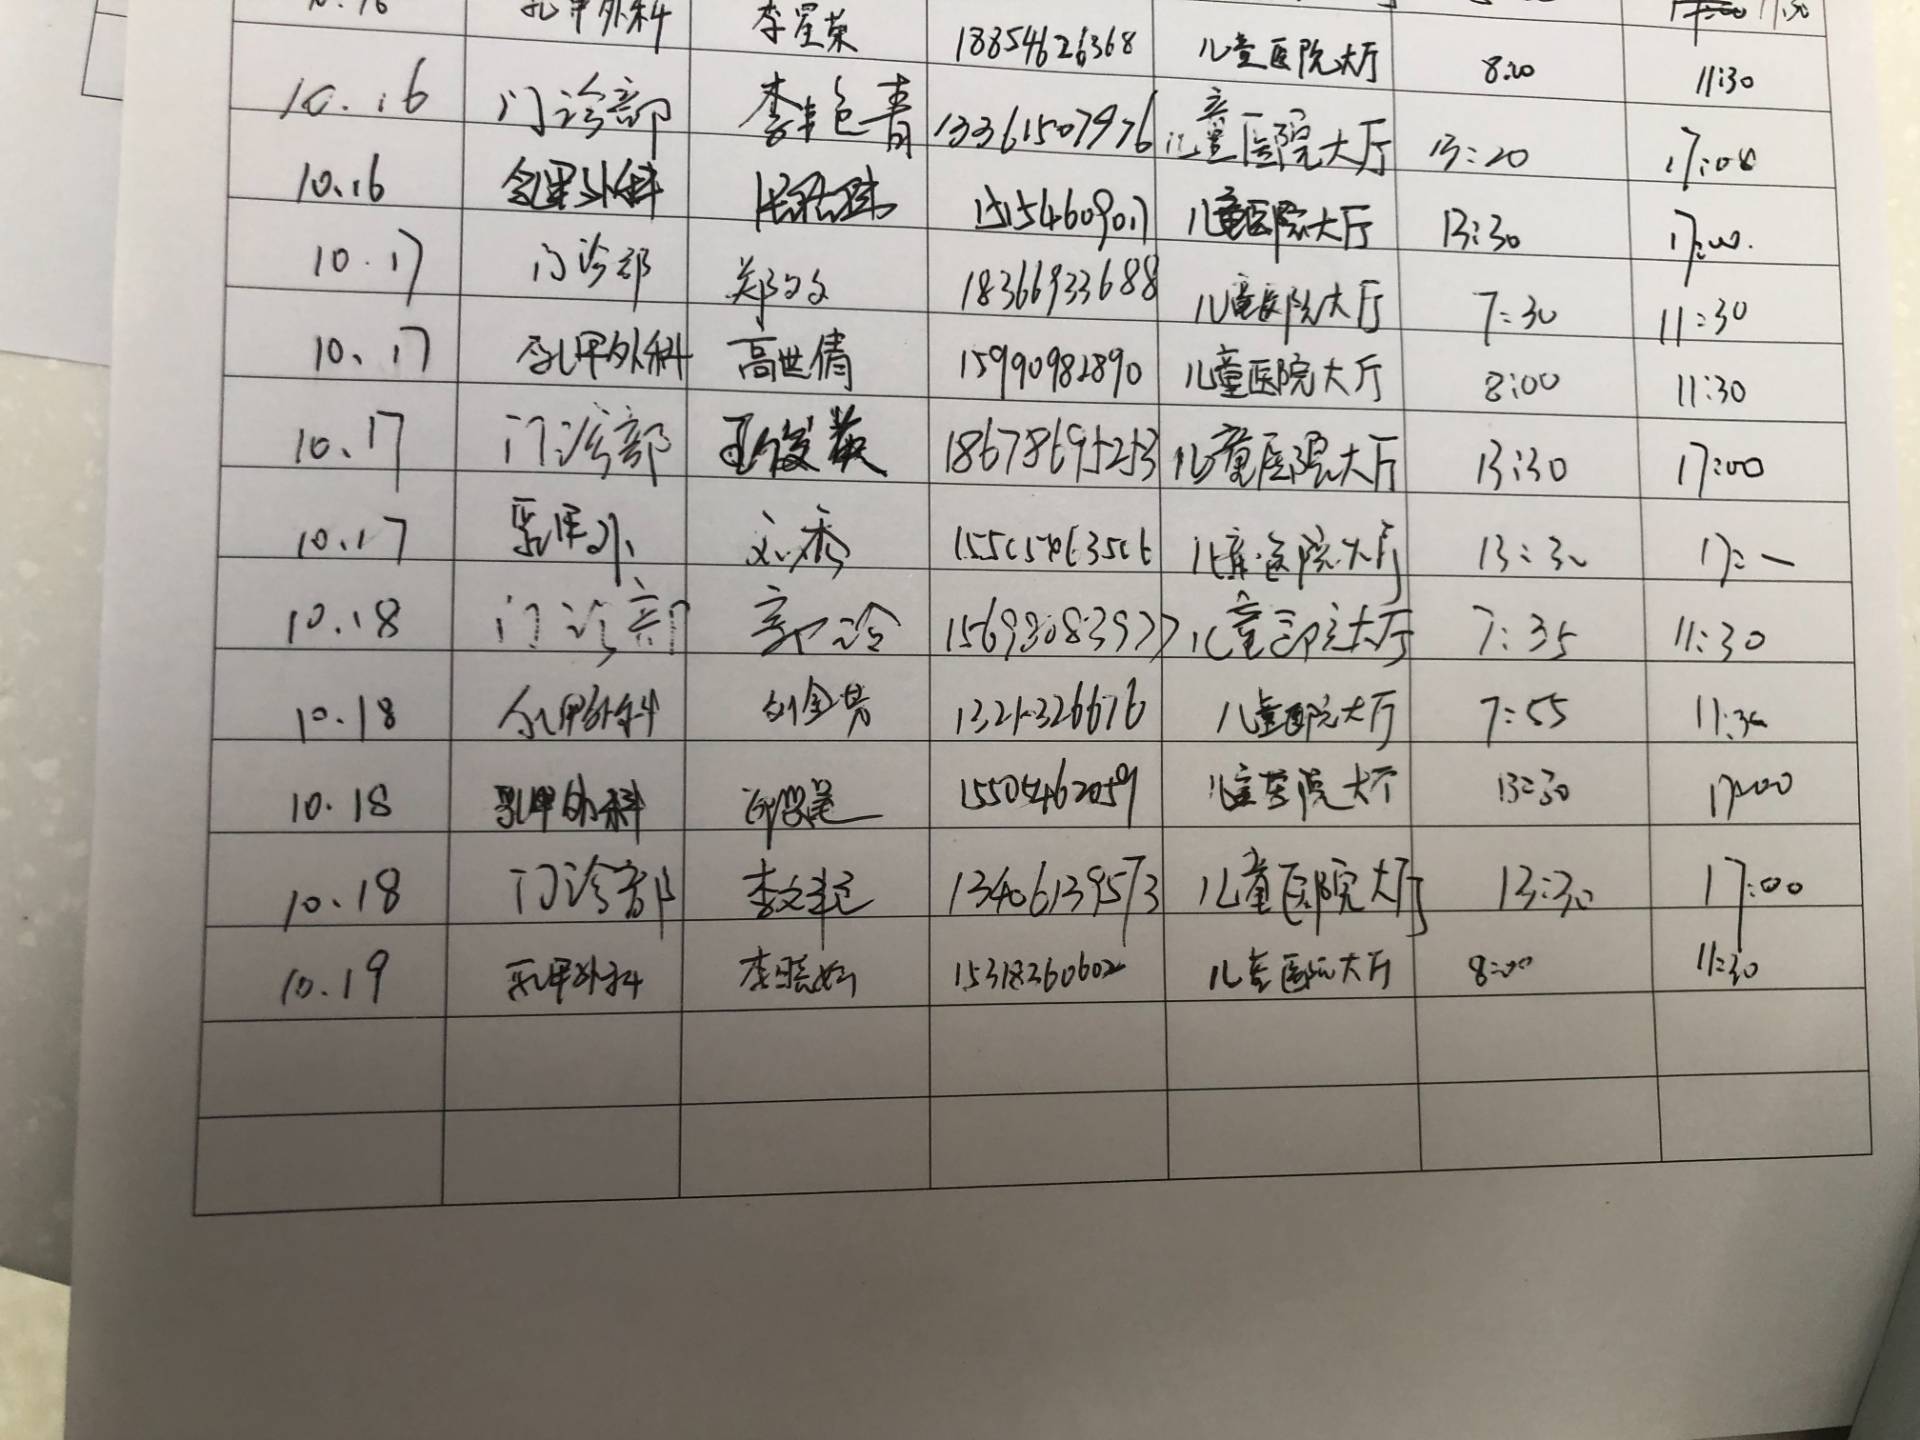 10.16 乳甲外科 李星荣 18854626368 儿童医院大厅 8:00 11:30
10.16 门诊部 李艳青 13361507976 儿童医院大厅 13:20 17:00
10.16 乳甲外科 15154609017 儿童医院大厅 13:30 17:00
10.17 门诊部 郑文文 18366933688 儿童医院大厅 7:30 11:30
10.17 乳甲外科 高世倩 15990982890 儿童医院大厅 8:00 11:30
10.17 门诊部 王俊英 18678695253 儿童医院大厅 13:30 17:00
10.17 乳甲外 刘秀 儿童医院大厅 13:30 17:
10.18 门诊部 郭冷 15693083977 儿童医院大厅 7:35 11:30
10.18 乳甲外科 儿童医院大厅 7:55 11:30
10.18 乳甲外科 15505462059 儿童医院大厅 13:30 17:00
10.18 门诊部 李文艳 13406139573 儿童医院大厅 13:30 17:00
10.19 乳甲外科 李晓 15318260602 儿童医院大厅 8:00 11:30